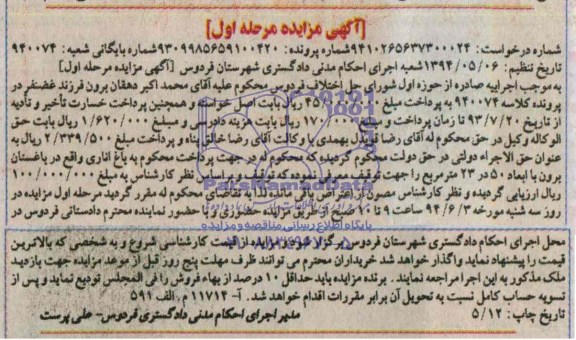 [آگهی مزایده مرحله اول]
شماره درخواست: ۹۴۱۰۲۶۵۶۳۷۳۰۰۰۲۴شماره پرونده: ۹۳۰۹۹۸۵۶۵۹۱۰۰۴۲۰شماره بایگانی شعبه: ۹۴۰۰۷۴
تاریخ تنظیم: ۱۳۹۴/۰۵/۰۶شعبه اجرای احکام مدنی دادگستری شهرستان فردوس [آگهی مزایده مرحله اول]
به موجب اجراییه صادره از حوزه اول شورای حل اختلاف فردوس محکوم علیه آقای محمد اکبر دهقان برون فرزند غضنفر در
پرونده کلاسه ۹۴۰۰۷۴ به پرداخت مبلغ ریال بابت اصل خواسته و همچنین پرداخت خسارت تأخیر و تأدیه
از تاریخ ۹۳/۷/۲۰ تا زمان پرداخت و مبلغ ریال بابت هزینه دادرسی و مبلغ ۱/۶۲۰/۰۰۰ ریال بابت حق
الوکاله وکیل در حق محکوم له آقای رضا قندیل بهمدی با وکالت آقای رضا خالق پناه و پرداخت مبلغ ۲/۳۳۹/۵۰۰ ریال به
عنوان حق الاجراء دولتی در حق دولت محکوم گردیده که محکوم له در جهت پرداخت محکوم به باغ اناری واقع در باغستان
برون با ابعاد ۵۰ در ۲۳ مترمربع را جهت توقیف معرفی نموده که توقیف و بر اساس نظر کارشناس به مبلغ ۱۰۰/۰۰۰/۰۰۰
ریال ارزیابی گردیده و نظر کارشناس مصون از اعتراض باقی مانده لذا به تقاضای محکوم له مقرر گردید مرحله اول مزایده در
روز سه شنبه مورخه ۹۴/۶/۳ ساعت ۹ تا ۱۰ صبح از طریق مزایده حضوری و با حضور نماینده محترم دادستانی فردوس در
محل اجرای احکام دادگستری شهرستان فردوس برگزار شود مزایده از قیمت کارشناسی شروع و به شخصی که بالاترین
قیمت را پیشنهاد نماید واگذار خواهد شد خریداران محترم می توانند ظرف مهلت پنج روز قبل از موعد مزایده جهت بازدید
ملک مذکور به این اجرا مراجعه نمایند. برنده مزایده باید حداقل ۱۰ درصد از بهاء فروش را فی المجلس تودیع نماید و پس از
تسویه حساب کامل نسبت به تحویل آن برابر مقررات اقدام خواهد شد. آ- ۱۱۷۱۴ م. الف ۵۹۱
تاریخ چاپ: ۵/۱۲ مدیر اجرای احکام مدنی دادگستری فردوس- علی پرست
ParsNamadData
پایگاه اطلاع رسانی مناقصه و مزایده